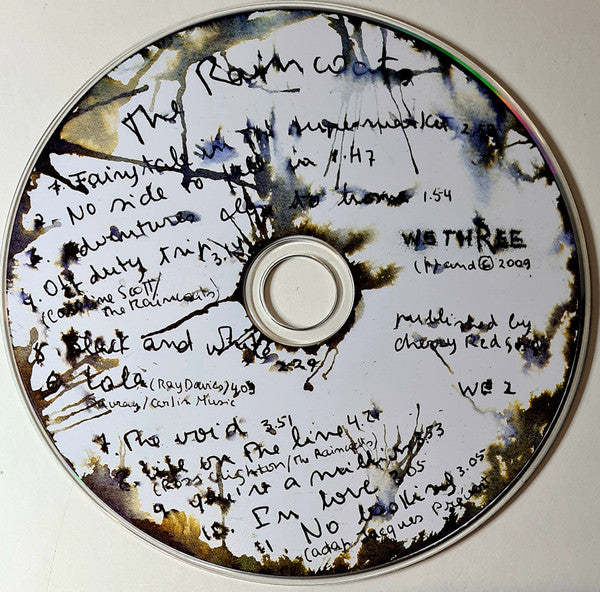 The Raincoats
1. Fairytale in the supermarket
2. No side to fall in 1.47
3. Adventures close to home 1.54
4. Off duty trip 3.
(Caroline Scott/
The Raincoats)
5. Black and white
2.29
6 Lola (Ray Davies) 4.03
Davray/Carlin Music
7. The void 3.51
8. Life on the line 4.2
(Ross Crighton/The Raincoats)
9. you're a million 3.53
10. In love 3.05
11. No looking 3.05
(adap. Jacques Prévert)
WE THREE
(P) and © 2009
Published by
Cherry Red Songs
WE 2